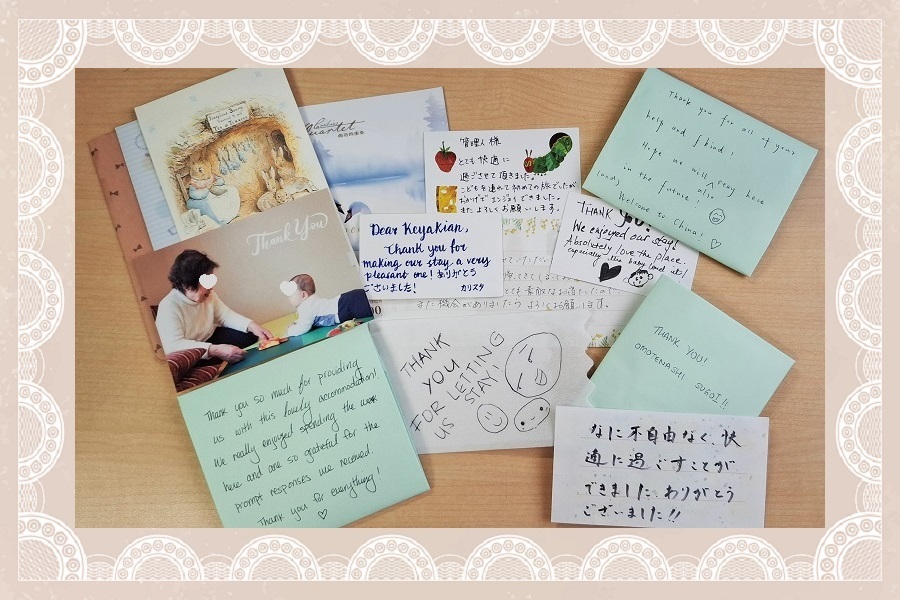 Thank You
Thank you so much for providing
us with this lovely accommodation!
We really enjoyed spending the week
here and are so grateful for the
prompt responses we received.
Thank you for everything!
Quartet
管理人様
とても快適に
過ごさせて頂きました。
こどもを連れて初めての旅でしたが
おかげでエンジョイできました。
またよろしくお願いします。
Dear Keyakian,
Thank you for
making our stay a very
pleasant one! ありがとう
ございました!
カリスタ
また機会がありましたらよろしくお願いします。
THANK
YOU
FOR LETTING
US STAY!
THANK YOU!
We enjoyed our stay!
Absolutely love the place.
especially the baby (and us)!
Thank you for all of your
help and kind
Hope we will stay here
in the future also
Welcome to China!
THANK YOU!
OMOTENASHI SUGOI!!
なに不自由なく、快
適に過ごすことが
できました ありがとう
ございました!!